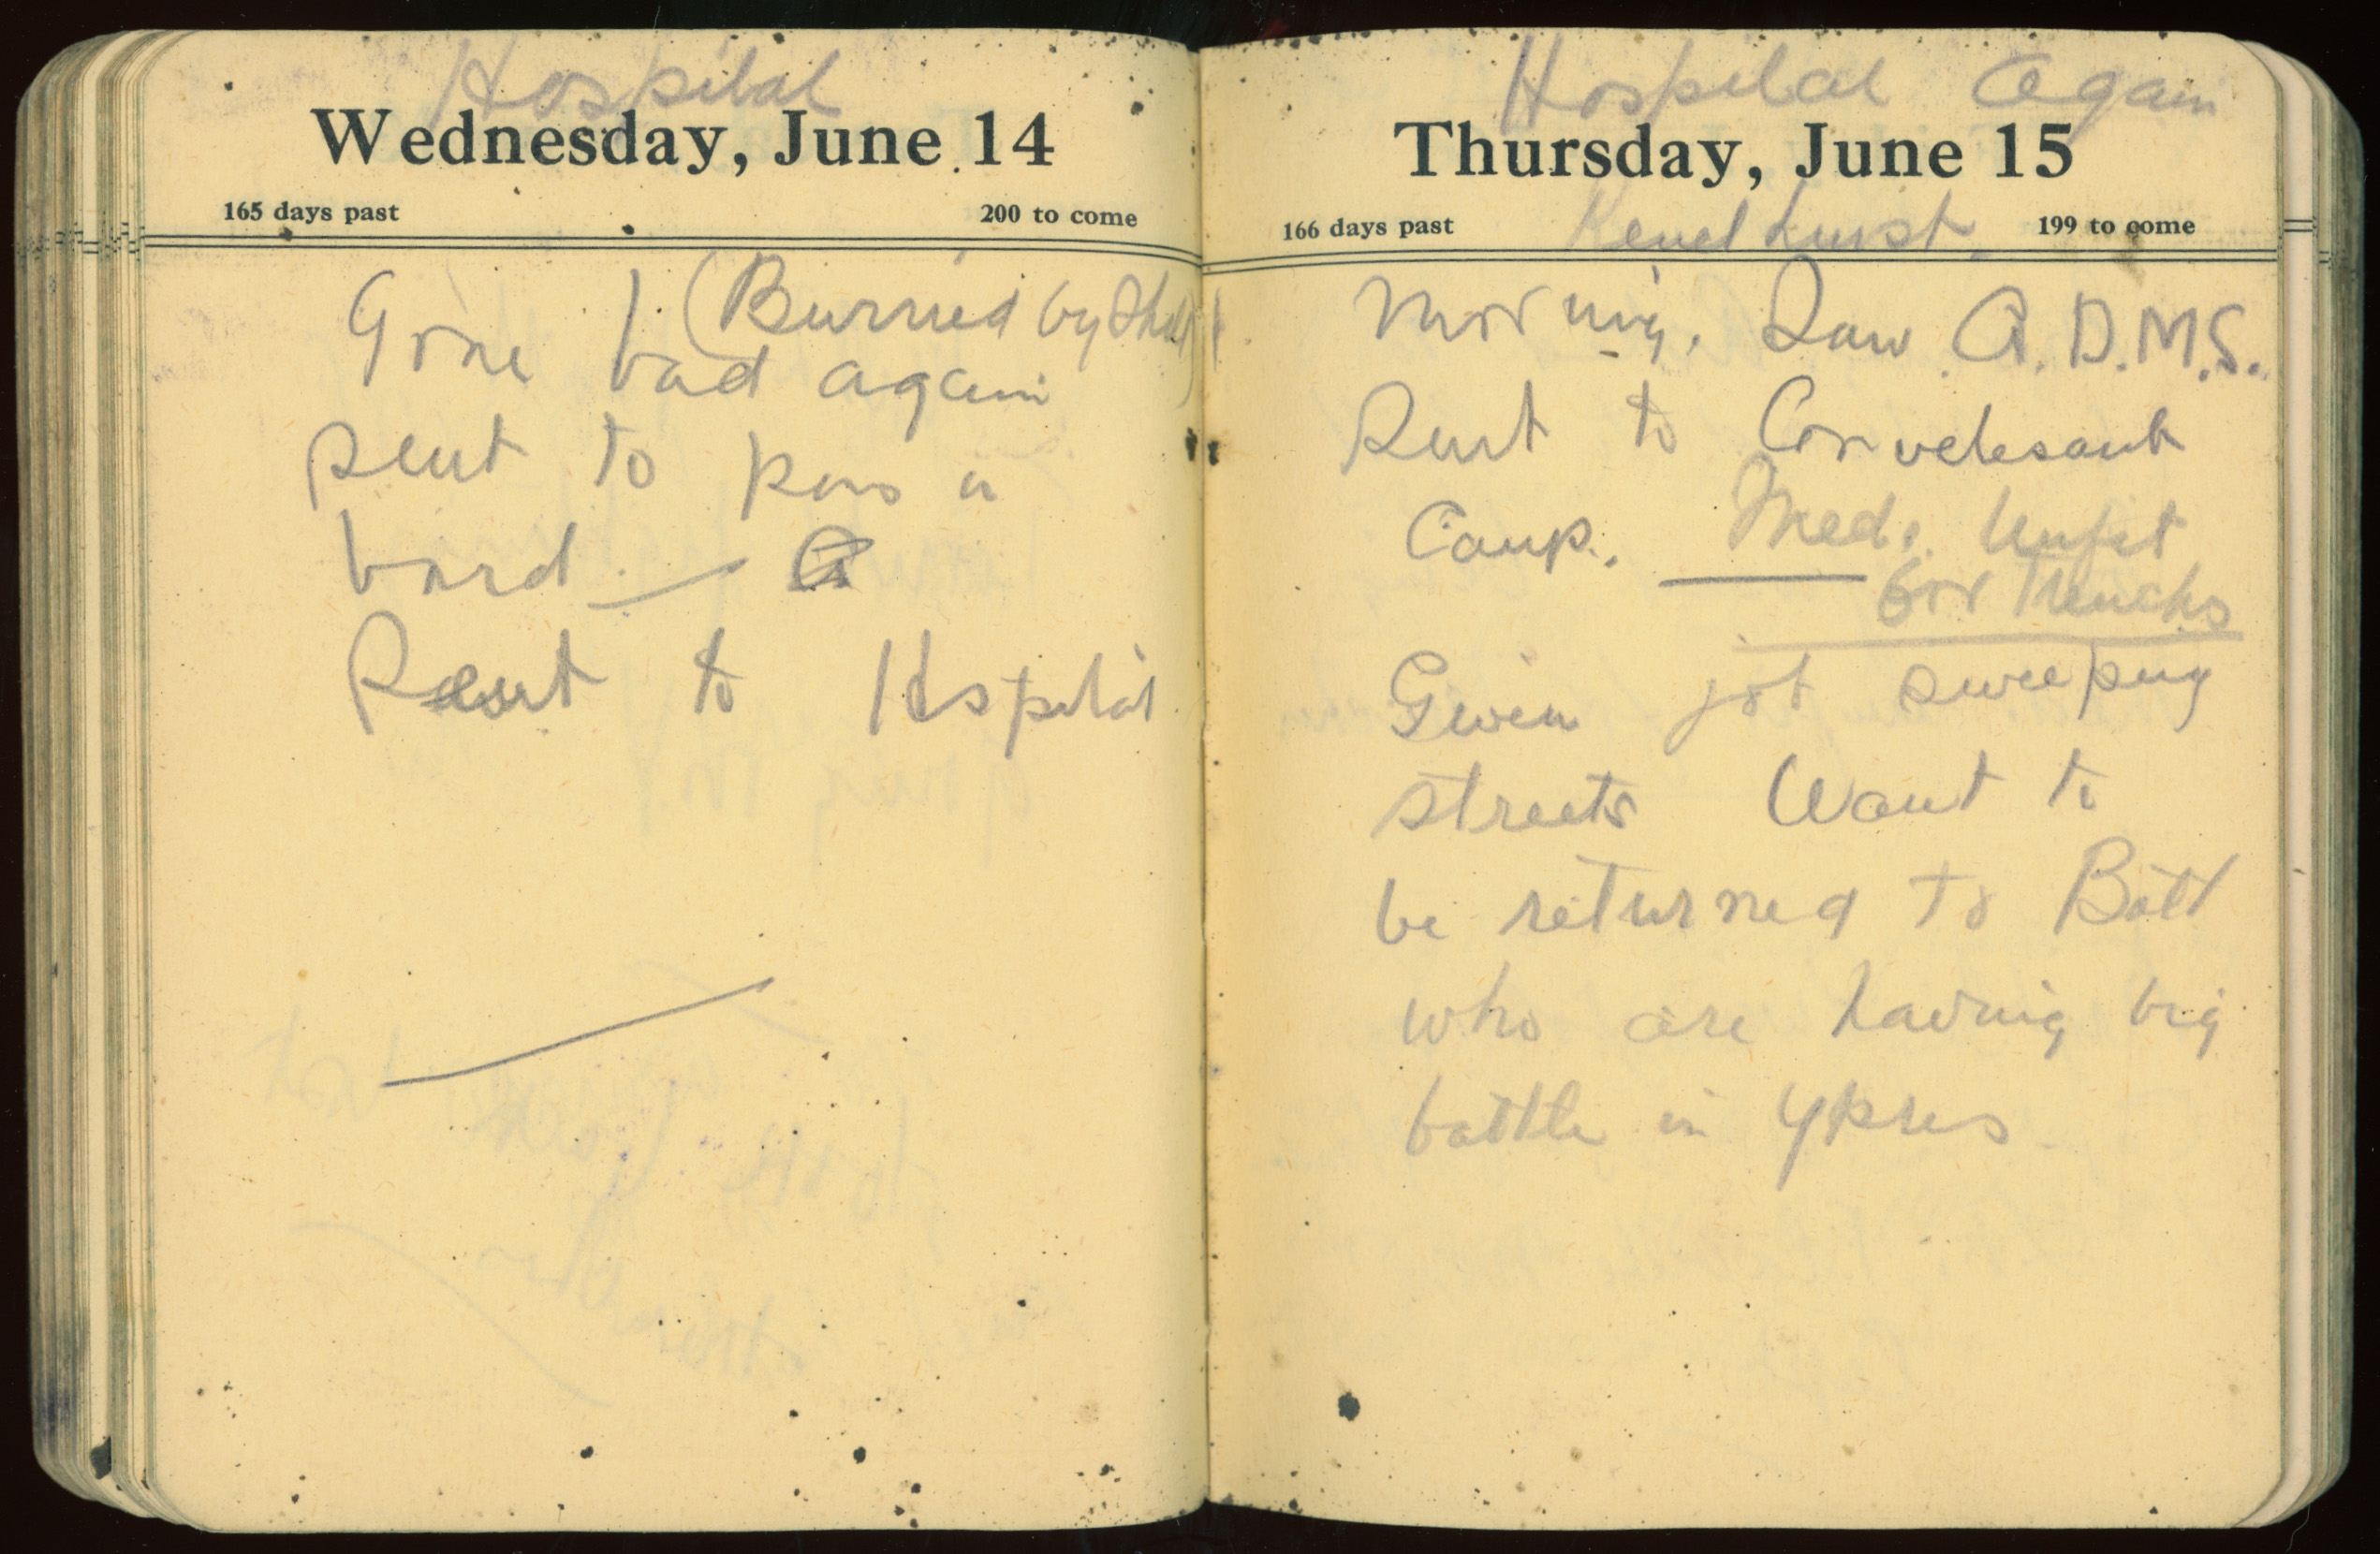 Hospital
Wednesday, June 14
165 days past 200 to come
(Burried by Shell)
Gone bad again
sent to pass a
board
Sent to Hospital
Hospital Again
Thursday, June 15
166 days past 199 to come
Morning. Saw A.D.M.S.
Sent to Convelesant
Camp. Med. Unfit
for Trenches
Given job sweeping
streets Want to
be returned to Batt
who are having big
battle in Ypres